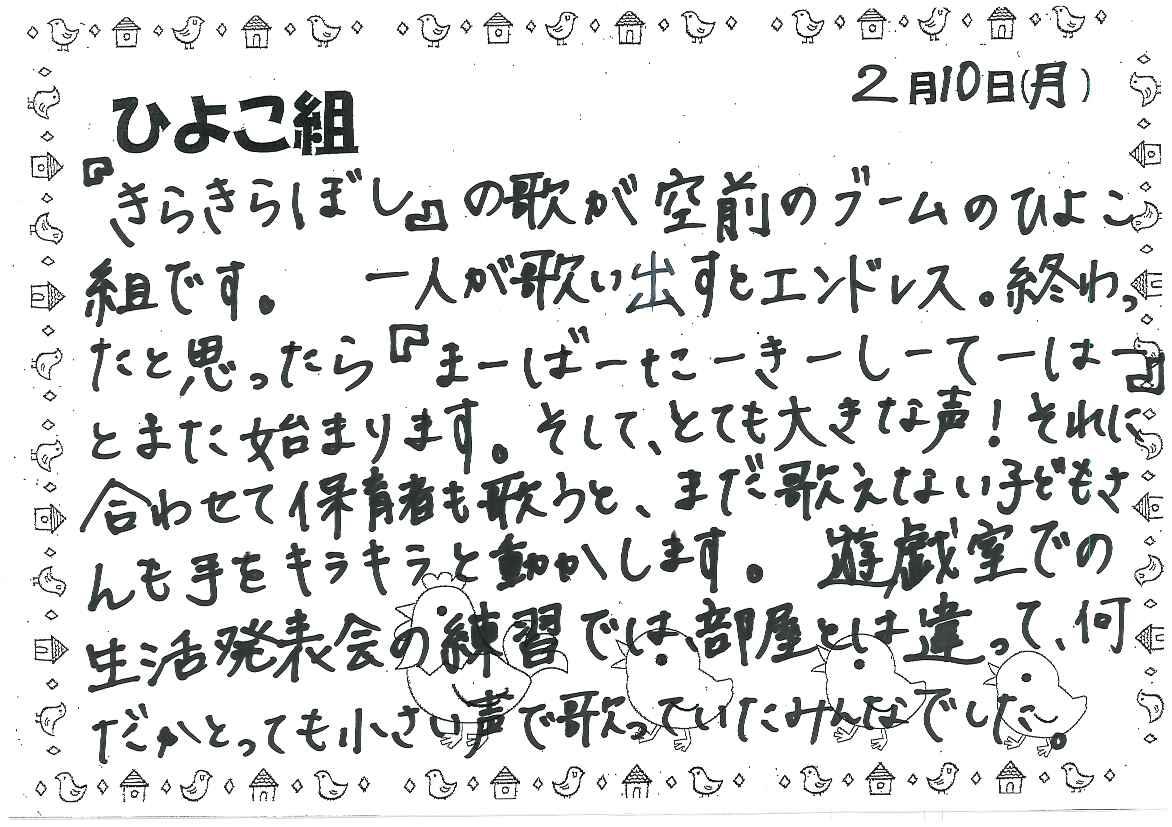 2月10日(月)
ひよこ組
『きらきらぼし』の歌が空前のブームのひよこ
組です。 一人が歌い出すとエンドレス。終わっ
たと思ったら『まーばーたーきーしーてーは―』
とまた始まります。そして、とても大きな声!それに
合わせて保育者も歌うと、まだ歌えない子どもさ
んも手をキラキラと動かします。 遊戯室での
生活発表会の練習では、部屋とは違って、何
だかとっても小さい声で歌っていたみんなでした。